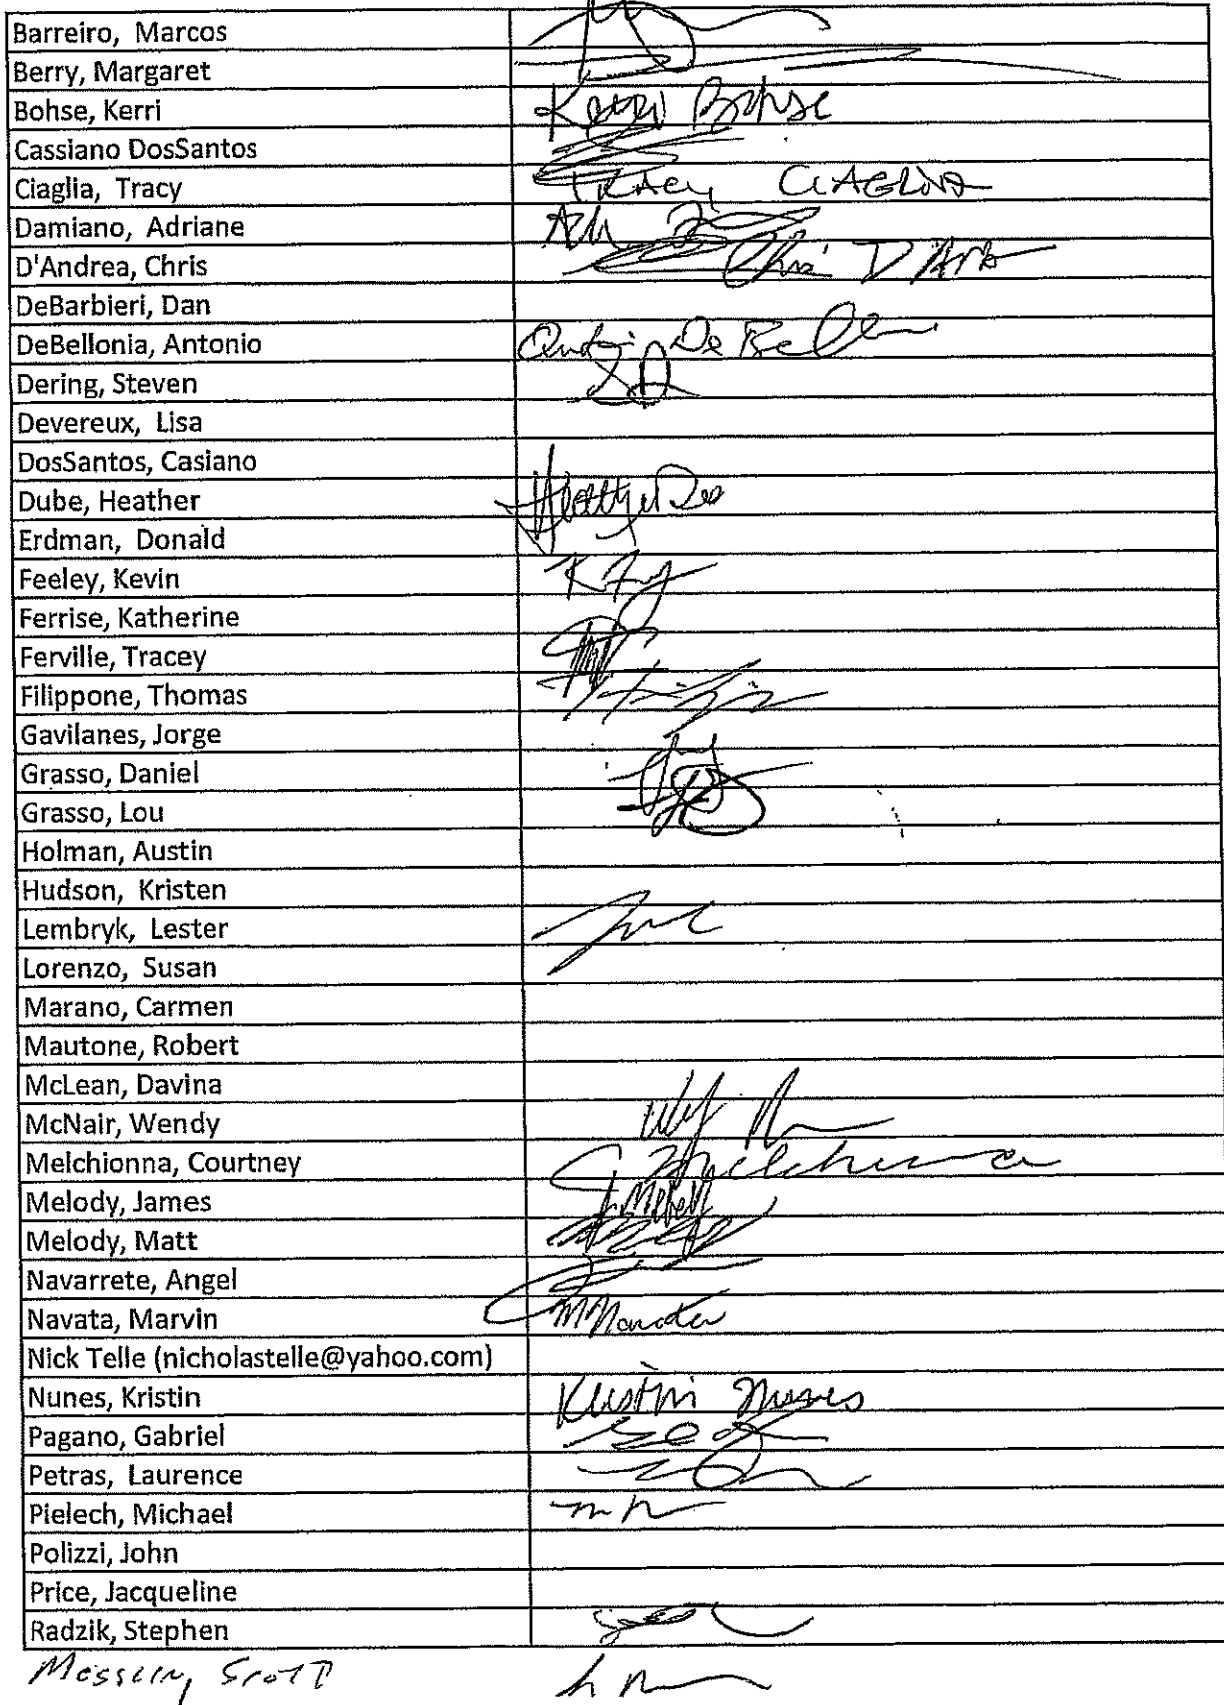 Barreiro, Marcos
Berry, Margaret
Bohse, Kerri Kerri Bohse
Cassiano DosSantos
Ciaglia, Tracy TRACY CIAGLIA
Damiano, Adriane
D'Andrea, Chris Chris
DeBarbieri, Dan
DeBellonia, Antonio
Dering, Steven SD
Devereux, Lisa
DosSantos, Casiano
Dube, Heather Heather
Erdman, Donald
Feeley, Kevin
Ferrise, Katherine
Ferville, Tracey
Filippone, Thomas
Gavilanes, Jorge
Grasso, Daniel
Grasso, Lou
Holman, Austin
Hudson, Kristen
Lembryk, Lester
Lorenzo, Susan
Marano, Carmen
Mautone, Robert
McLean, Davina
McNair, Wendy
Melchionna, Courtney C Melchionna
Melody, James J Melody
Melody, Matt
Navarrete, Angel
Navata, Marvin M Navata
Nick Telle (nicholastelle@yahoo.com)
Nunes, Kristin Kristin Nunes
Pagano, Gabriel
Petras, Laurence
Pielech, Michael
Polizzi, John
Price, Jacqueline
Radzik, Stephen
Scott